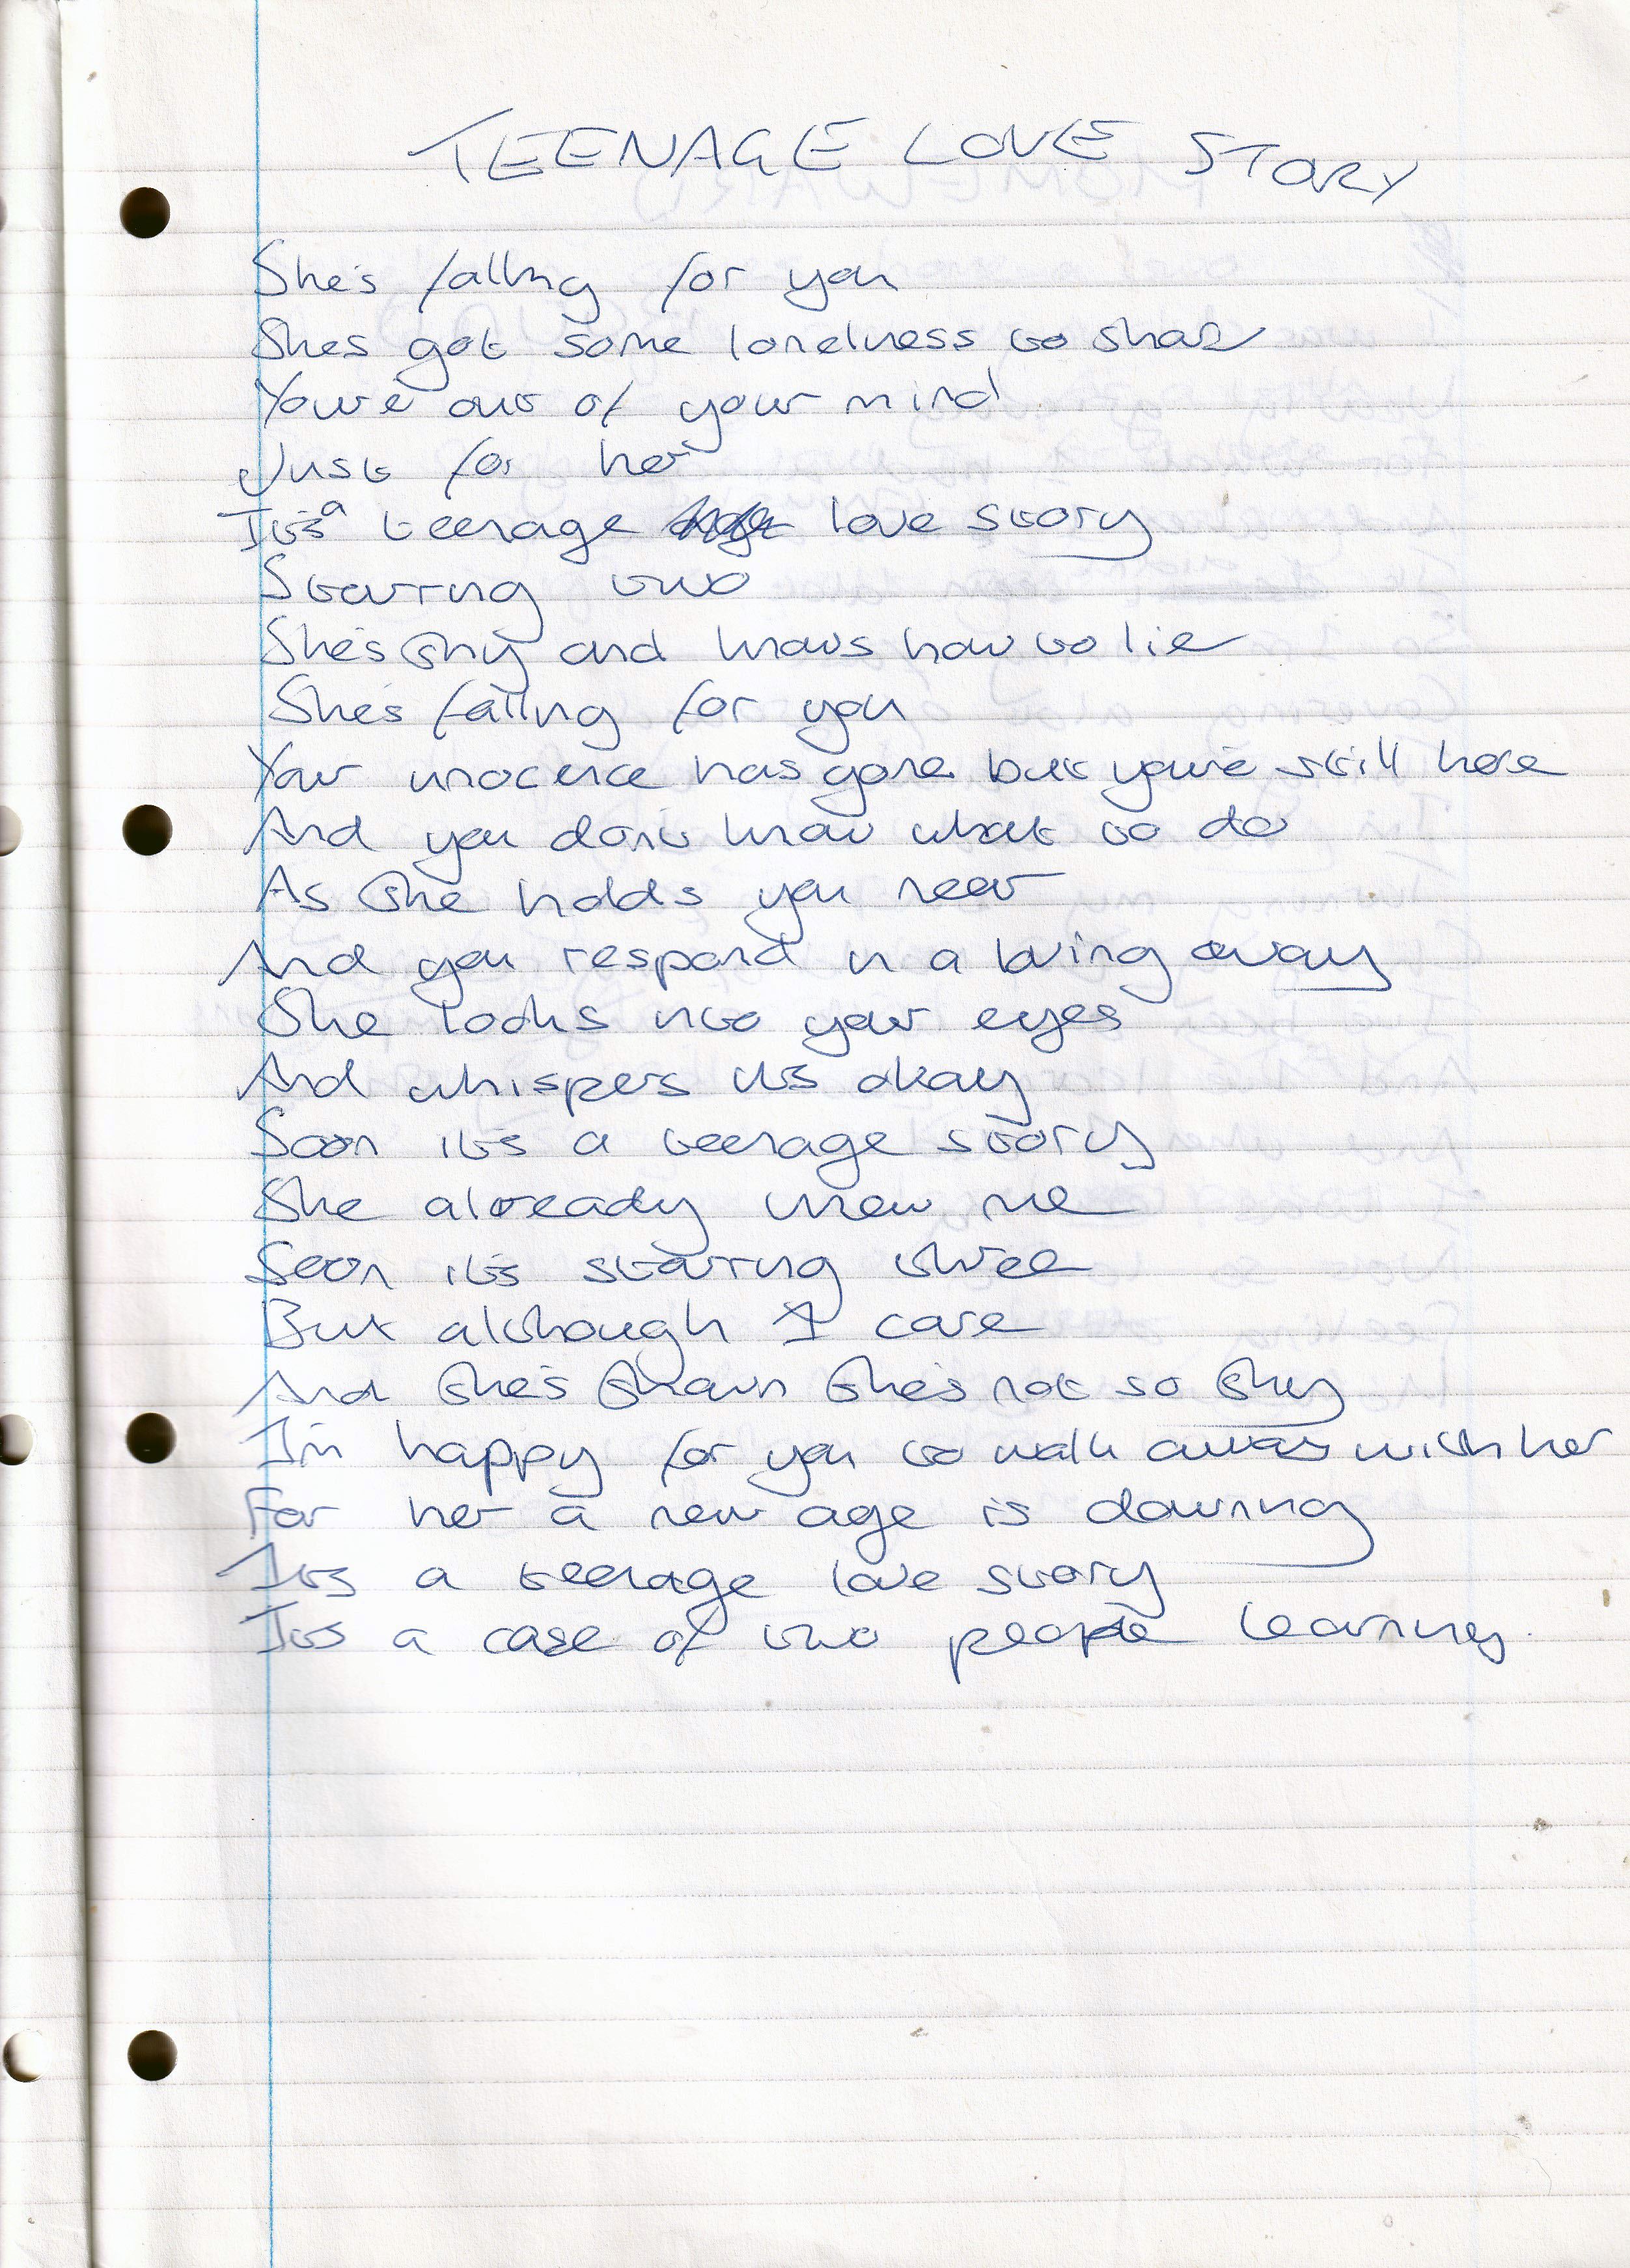 TEENAGE LOVE STORY
She's falling for you
Shes got some lonelness to share
You're out of your mind
Just for her
Its a teenage love story
Starring two
She's shy and knows how to lie
She's falling for you
Your inocence has gone but you're still here
And you dont know what to do
As she holds you near
And you respond in a loving away
She looks into your eyes
And whispers its okay
Soon it's a teenage story
She already knew me
Soon it's starring three
But although I care
And she's shown she's not so shy
I'm happy for you to walk away with her
For her a new age is dawning
Its a teenage love story
Its a case of two people learning.